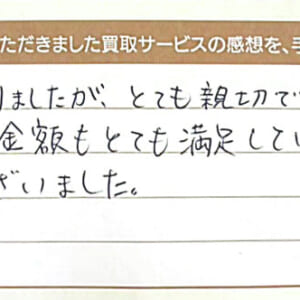 ただきました買取サービスの感想を、手
りましたが、とても親切で
金額もとても満足してい
ざいました。